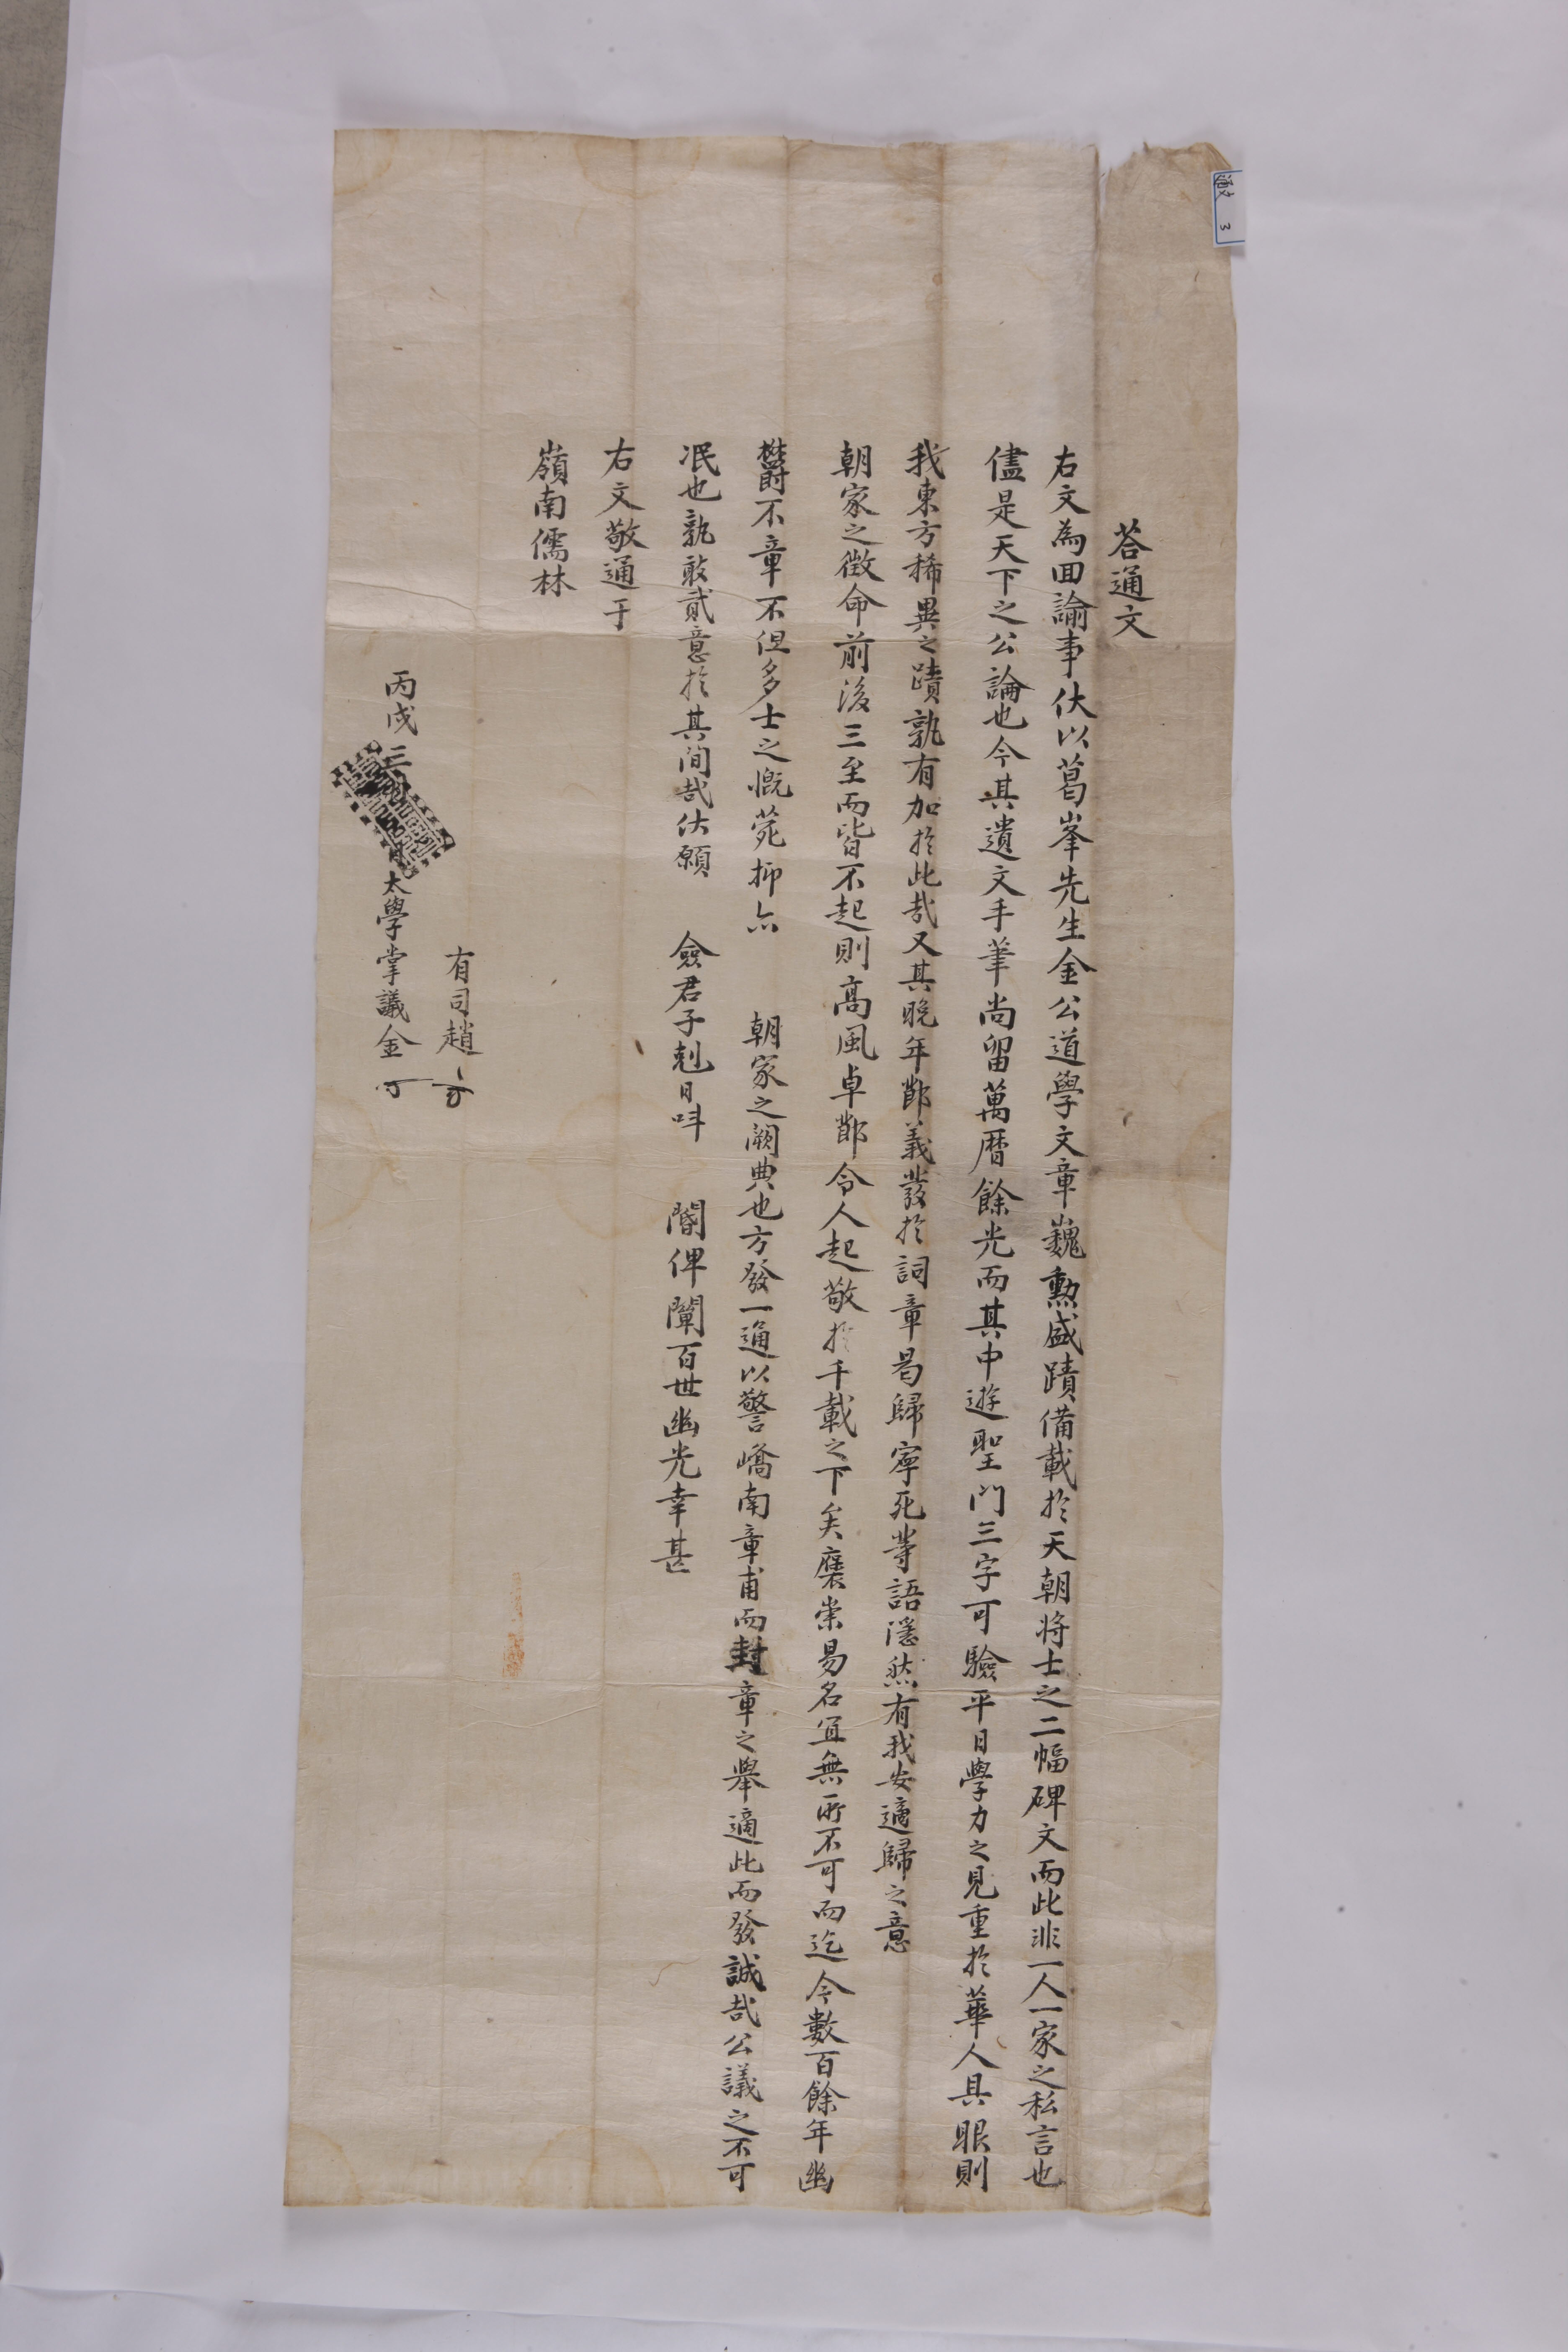 通文 3
答通文
右文為回諭事伏以葛峯先生金公道學文章巍勳盛蹟備載於天朝將士之二幅碑文而此非一人一家之私言也
儘是天下之公論也今其遺文手筆尚留萬曆餘光而其中遊聖門三字可驗平日學力之見重於華人具眼則
我東方稀異之蹟孰有加於此哉又其晚年節義發於詞章曷歸寧死等語隱然有我安適歸之意
朝家之徵命前後三至而皆不起則高風卓節令人起敬於千載之下矣褒崇易名宜無所不可而迄今數百餘年幽
欝不章不但多士之慨菀抑亦 朝家之闕典也方發一通以警嶠南章甫而封章之擧適此而發誠哉公議之不可
泯也孰敢貳意於其間哉伏願 僉君子剋日呌 閽俾闡百世幽光幸甚
右文敬通于
嶺南儒林
有司趙
丙戌三月 日太學掌議金